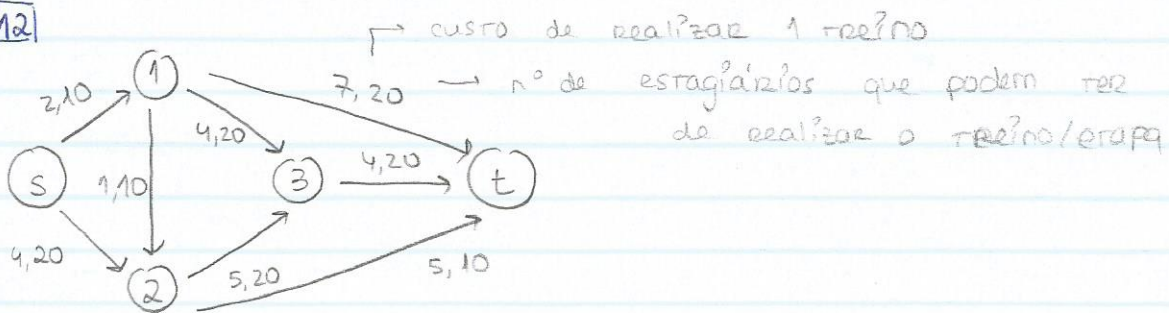 12
custo de realizar 1 treino
7, 20 → nº de estagiários que podem ter
de realizar o treino/etapa
1
2, 10
4, 20
S
1, 10
3
4, 20
t
4, 20
2
5, 20
5, 10